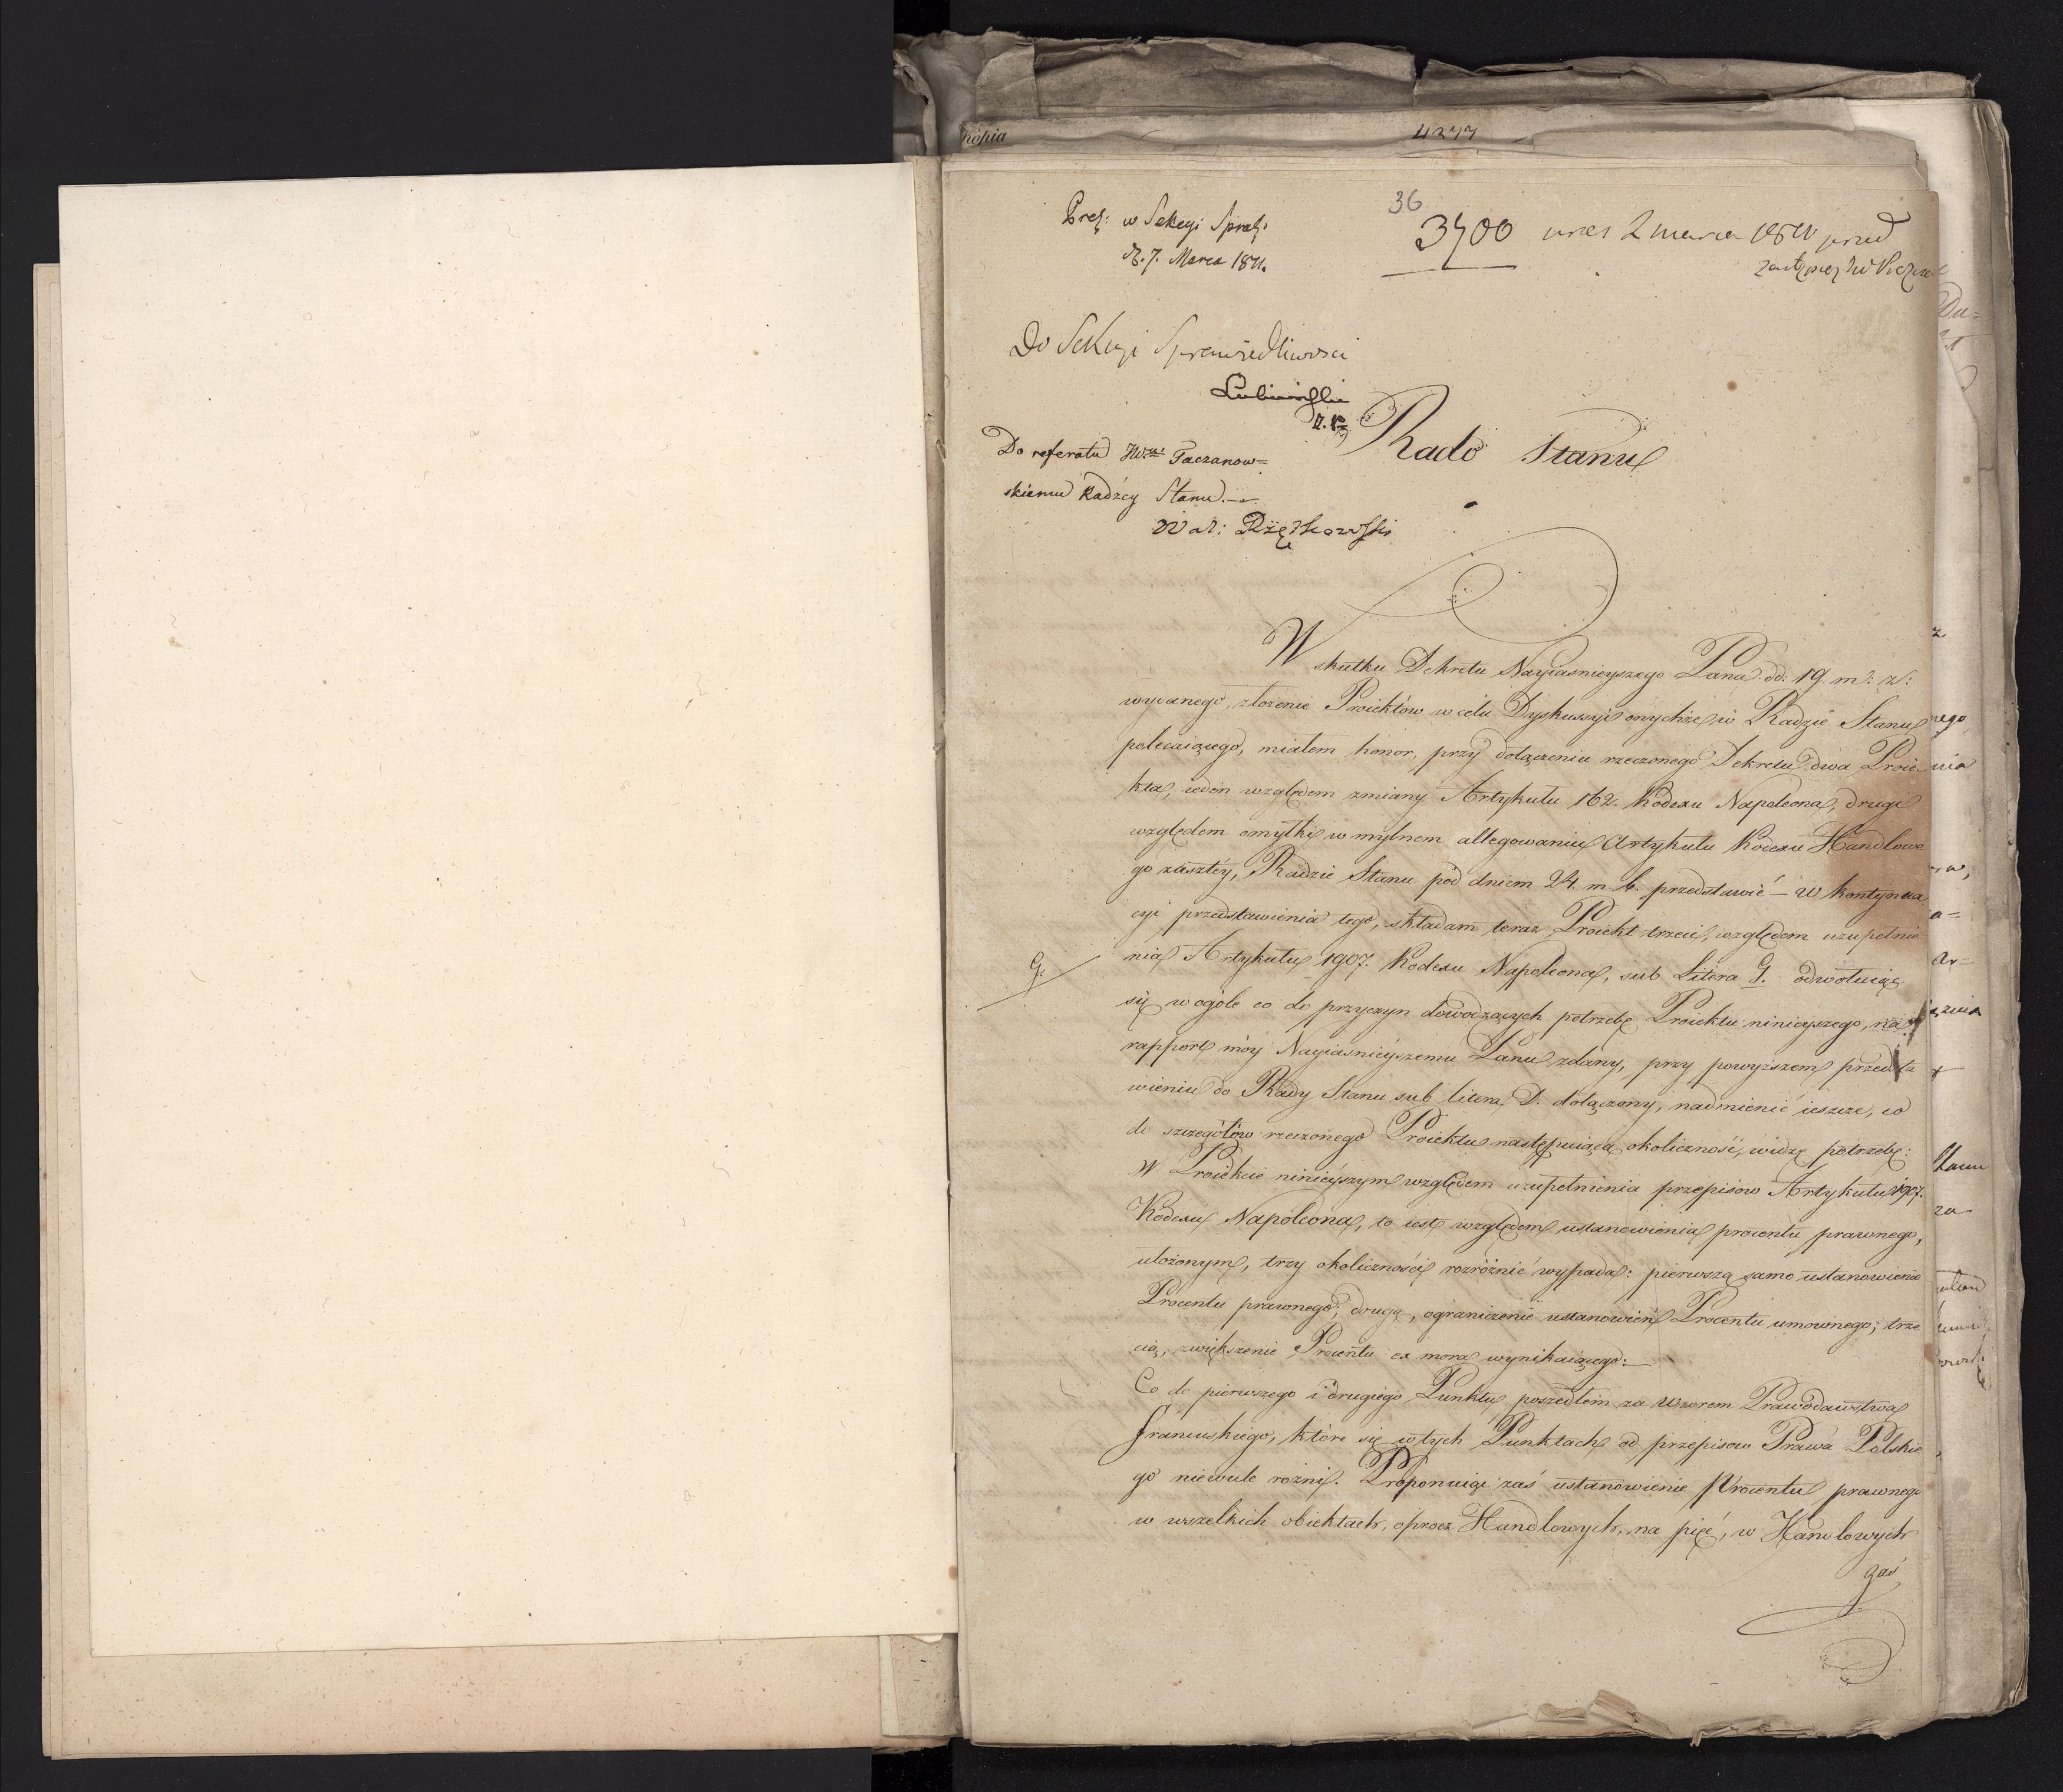 kopia
4277
36
Prez: w Sekcyi Spraẃ:
d. 7. Marca 1811.
3700 2 marca 1811
Do Sekcyi Sprawiedliwosci
Lubieński
Do referatu JW. Taczanow=
skiemu Radźcy Stanu.
Rado Stanu
W skutku Dekretu Nayiasnieyszego Pana dd: 19. m:
wydanego, złożenie Proiektów w celu Dyskussyi onychże w Radzie Stanu
polecaiącego, miałem honor, przy dołączeniu rzeczonego Dekretu dwa Proie
kta, ieden względem zmiany Artykułu 162. Kodexu Napoleona, drugi
względem omyłki w mylnem allegowaniu Artykułu Kodexu Handlowe
go zaszłéy, Radzie Stanu pod dniem 24. m. b. przedstawić — w kontynua
cyi przedstawienia tego, składam teraz Proiekt trzeci, względem uzupełnie
G.
nia Artykułu 1907. Kodexu Napoleona, sub Litera G. odwołuiąc
się w ogóle co do przyczyn dowodzących potrzebę Proiektu ninieyszego, na
rapport móy Nayiasnieyszemu Panu zdany, przy powyższem przedsta
wieniu do Rady Stanu sub litera D. dołączony, nadmienić ieszcze, co
do szczegółów rzeczonego Proiektu następuiącą okoliczność, widzę potrzebę:
W Proiekcie ninieyszym względem uzupełnienia przepisów Artykułu 1907.
Kodexu Napoleona, to iest względem ustanowienia procentu prawnego,
ułożonym, trzy okoliczności rozróżnić wypada: pierwszą samo ustanowienie
Procentu prawnego; drugą, ograniczenie ustanowień Procentu umownego; trze
cią, zwiększenie Procentu ex mora wynikaiącego: —
Co do pierwszego i drugiego Punktu poszedłem za wzorem Prawodawstwa
francuskiego, które się w tych Punktach od przepisow Prawa Polskie
go niewiele rożni. Proponuiąc zaś ustanowienie Procentu prawnego
w wszelkich obiektach, oprocz Handlowych, na pięć, w Handlowych
zaś